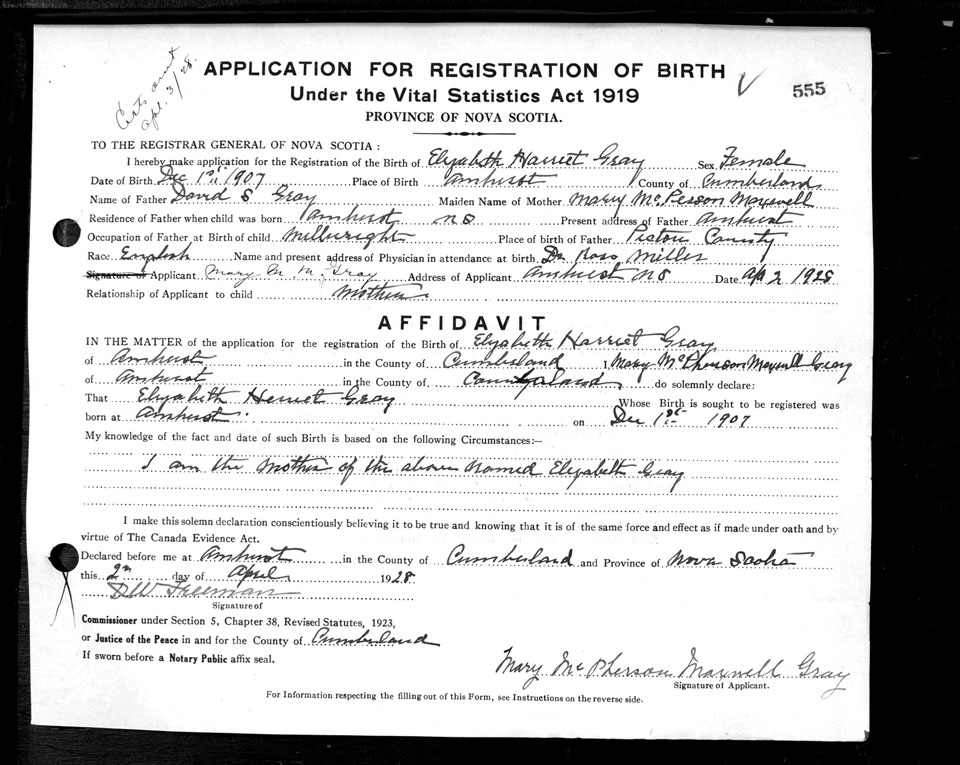 Certs sent
Apl. 3/28.
APPLICATION FOR REGISTRATION OF BIRTH
555
Under the Vital Statistics Act 1919
PROVINCE OF NOVA SCOTIA.
TO THE REGISTRAR GENERAL OF NOVA SCOTIA:
I hereby make application for the Registration of the Birth of Elizabeth Harriet Gray Sex Female
Date of Birth Dec 1st 1907 Place of Birth Amherst County of Cumberland
Name of Father David S Gray Maiden Name of Mother Mary McPerson Maxwell
Residence of Father when child was born Amherst NS Present address of Father Amherst
Occupation of Father at Birth of child Millwright Place of birth of Father Pictou County
Race English Name and present address of Physician in attendance at birth Dr Ross Miller
Signature of Applicant Mary M. M. Gray Address of Applicant Amherst NS Date Ap 2 1928
Relationship of Applicant to child Mother
AFFIDAVIT
IN THE MATTER of the application for the registration of the Birth of Elizabeth Harriet Gray
of Amherst in the County of Cumberland, Mary McPherson Maxwell Gray
of Amherst in the County of Cumberland do solemnly declare:
That Elizabeth Herriet Gray Whose Birth is sought to be registered was
born at Amherst on Dec 1st 1907
My knowledge of the fact and date of such Birth is based on the following Circumstances:—
I am the Mother of the above Named Elizabeth Gray
I make this solemn declaration conscientiously believing it to be true and knowing that it is of the same force and effect as if made under oath and by
virtue of The Canada Evidence Act.
Declared before me at Amherst in the County of Cumberland and Province of Nova Scotia
this 2n day of April 1928
DW Freeman
Signature of
Commissioner under Section 5, Chapter 38, Revised Statutes, 1923,
or Justice of the Peace in and for the County of Cumberland
If sworn before a Notary Public affix seal.
Mary McPherson Maxwell Gray
Signature of Applicant.
For Information respecting the filling out of this Form, see Instructions on the reverse side.